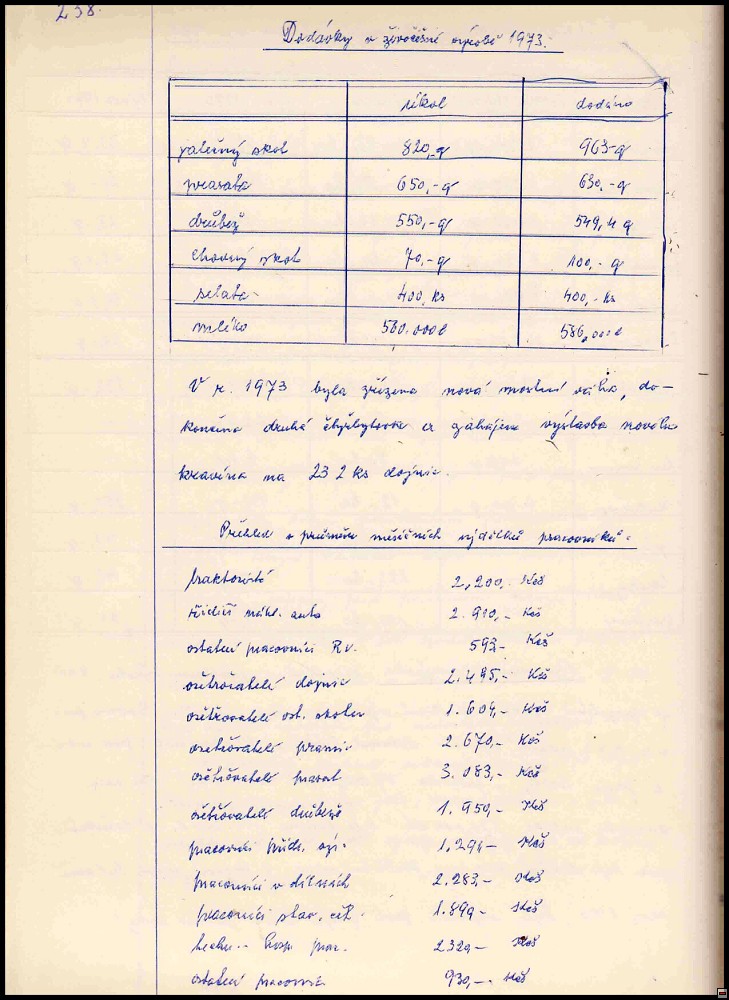 238.
Dodávky v živočišné výrobě 1973.
úkol dodáno
jatečný skot 820,-q 963-q
prasata 650,-q 630,-q
drůbež 550,-q 549,4 q
chovný skot 70,-q 100,- q
selata 400, ks 400,- ks
mléko 580.000l 586,000l
V r. 1973 byla zřízena nová mostní váha, do-
končena druhá čtyřbytovka a zahájena výstavba nového
kravína na 232 ks dojnic.
Přehled o průměru měsíčních výdělků pracovníků.
traktoristé 2,200,- Kčs
řidiči nákl. auta 2.910,- Kčs
ostatní pracovníci Rv. 593- Kčs
ošetřovatelé dojnic 2.495,- Kčs
ošetřovatelé ost. skotu 1.604,- Kčs
ošetřovatelé prasnic 2.670,- Kčs
ošetřovatelé prasat 3.083,- Kčs
ošetřovatelé drůbeže 1.950,- Kčs
pracovníci 1.291,- Kčs
pracovníci v dílnách 2.283,- Kčs
pracovníci stav. 1.899- Kčs
techn. - hosp. prac. 2329- Kčs
ostatní pracovníci 930,- Kčs